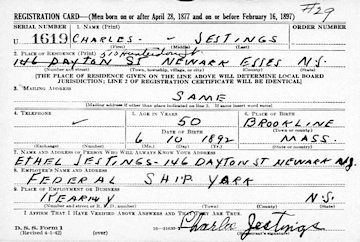 #29
REGISTRATION CARD—(Men born on or after April 28, 1877 and on or before February 16, 1897)
SERIAL NUMBER 1. NAME (Print) ORDER NUMBER
U 1619 CHARLES. - JESTINGS
(First) (Middle) (Last)
2. PLACE OF RESIDENCE (Print)
146 DAYTON ST NEWARK ESSEX N.J.
(Number and street) (Town, township, village, or city) (County) (State)
[THE PLACE OF RESIDENCE GIVEN ON THE LINE ABOVE WILL DETERMINE LOCAL BOARD
JURISDICTION; LINE 2 OF REGISTRATION CERTIFICATE WILL BE IDENTICAL]
3. MAILING ADDRESS
SAME
[Mailing address if other than place indicated on line 2. If same insert word same]
4. TELEPHONE 5. AGE IN YEARS 6. PLACE OF BIRTH
50 BROOKLINE
DATE OF BIRTH (Town or county)
6 10 1892 MASS.
(Exchange) (Number) (Mo.) (Day) (Yr.) (State or country)
7. NAME AND ADDRESS OF PERSON WHO WILL ALWAYS KNOW YOUR ADDRESS
ETHEL JESTINGS-146 DAYTON ST NEWARK N.J.
8. EMPLOYER'S NAME AND ADDRESS
FEDERAL SHIP YARK
9. PLACE OF EMPLOYMENT OR BUSINESS
KEARNY N.J.
(Number and street or R. F. D. number) (Town) (County) (State)
I AFFIRM THAT I HAVE VERIFIED ABOVE ANSWERS AND THAT THEY ARE TRUE.
D. S. S. Form 1
(Revised 4-1-42) (over)
Charles Jestings
(Registrant's signature)